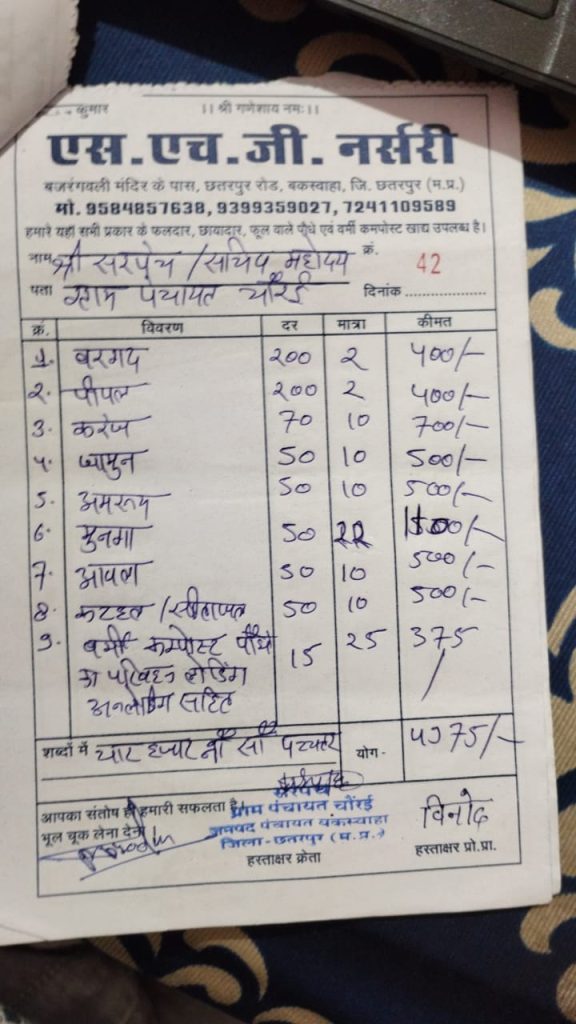 कुमार
।। श्री गणेशाय नमः।।
एस.एच.जी. नर्सरी
बजरंगवली मंदिर के पास, छतरपुर रोड, बकस्वाहा, जि. छतरपुर (म.प्र.)
मो. 9584857638, 9399359027, 7241109589
हमारे यहाँ सभी प्रकार के फलदार, छायादार, फूल वाले पौधे एवं वर्मी कम्पोस्ट खाद्य उपलब्ध है।
नाम श्री सरपंच /सचिव महोदय क्रं. 42
पता ग्राम पंचायत चौरई दिनांक
क्रं. विवरण दर मात्रा कीमत
1. बरगद 200 2 400/-
2. पीपल 200 2 400/-
3. करंज 70 10 700/-
4. जामुन 50 10 500/-
5. अमरूद 50 10 500/-
6. मुनगा 50 22
7. आवला 50 10 500/-
8. कटहल /सीताफल 50 10 500/-
9. वर्मी कम्पोस्ट पौधे 15 25 375
का परिवहन लोडिंग
अनलोडिंग सहित
शब्दों में चार हजार नौ सौ पचत्तर योग- 4975/-
आपका संतोष ही हमारी सफलता है।
भूल चूक लेना देना
ग्राम पंचायत चोंरई
जनपद पंचायत बकस्वाहा
जिला-छतरपुर (म.प्र.)
हस्ताक्षर क्रेता
विनोद
हस्ताक्षर प्रो.प्रा.